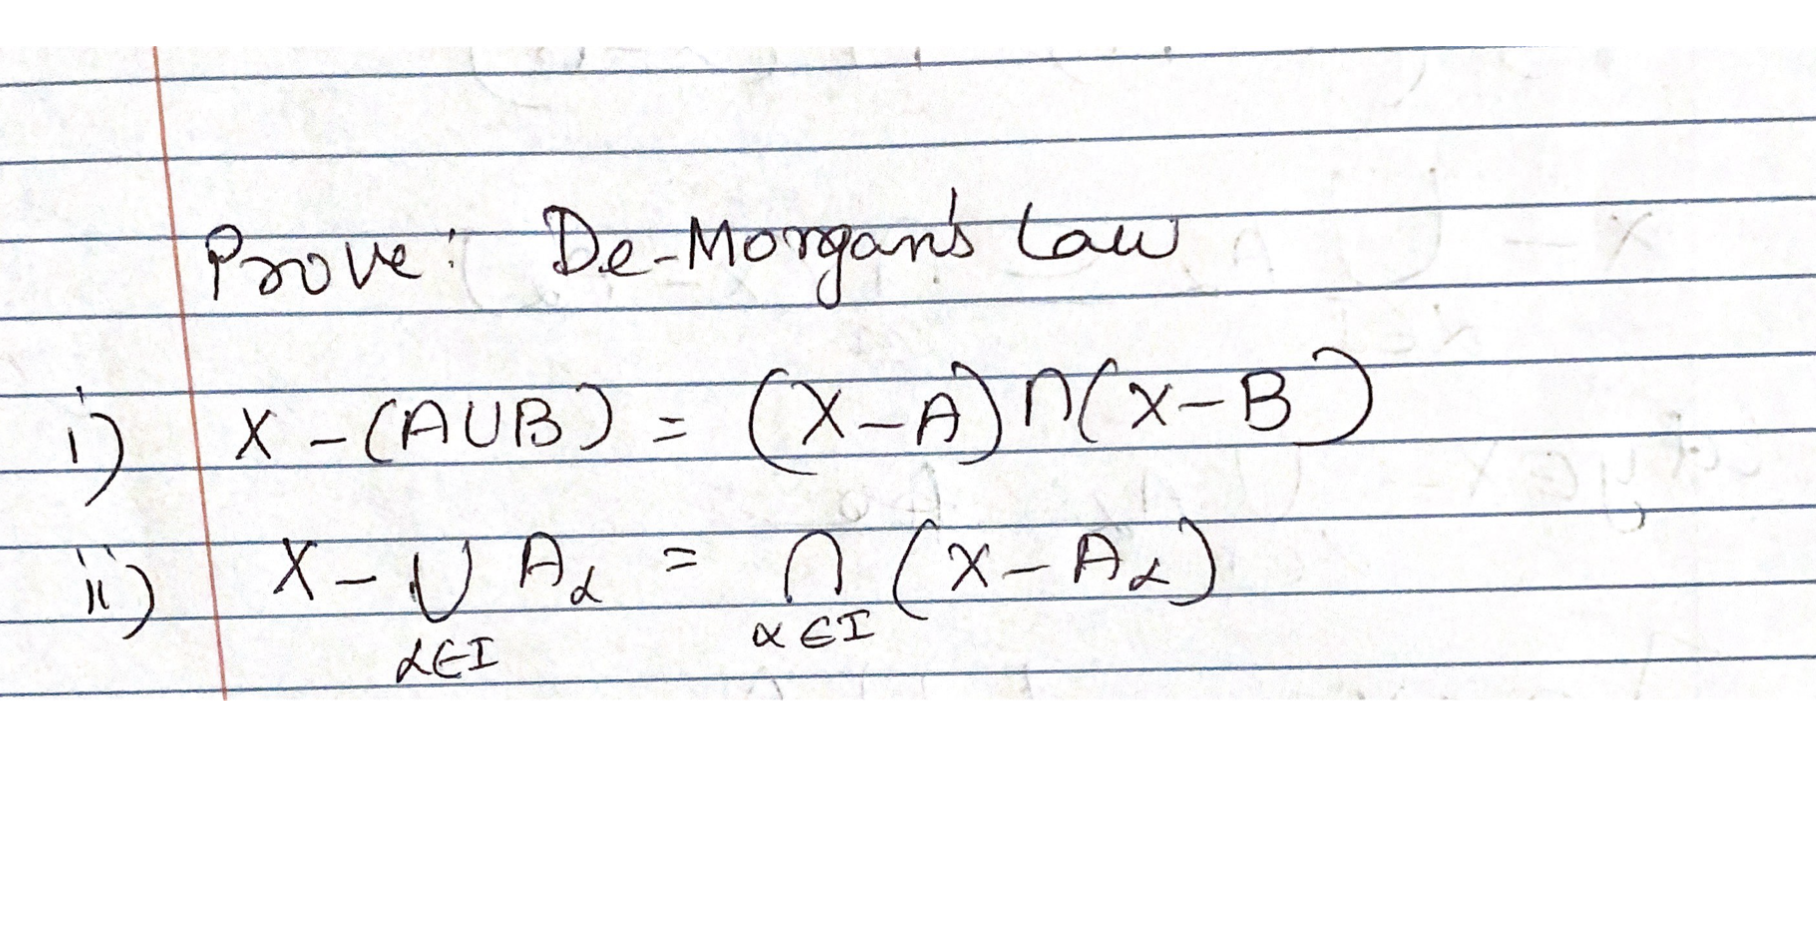 Prove: De-Morgan's Law
i) X - (A∪B) = (X-A)∩(X-B)
ii) X - ∪ Aα = ∩ (X-Aα)
α∈I α∈I